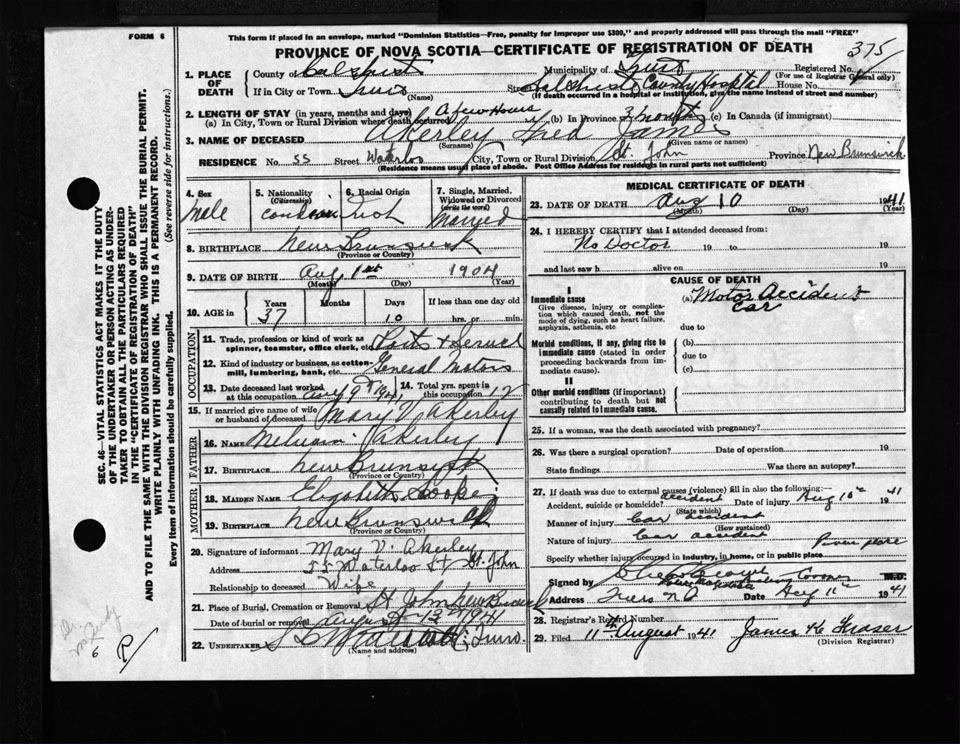 FORM 6
This form if placed in an envelope, marked "Dominion Statistics—Free, penalty for improper use $300," and properly addressed will pass through the mail "FREE"
PROVINCE OF NOVA SCOTIA—CERTIFICATE OF REGISTRATION OF DEATH
375
1. PLACE OF DEATH
County of Colchester
Municipality of Truro
Registered No.
(For use of Registrar General only)
If in City or Town Truro
(Name)
Street Colchester County Hospital House No.
(If death occurred in a hospital or institution, give the name instead of street and number)
2. LENGTH OF STAY (in years, months and days)
(a) In City, Town or Rural Division where death occurred A few Hours
(b) In Province 2 months
(c) In Canada (if immigrant)
3. NAME OF DECEASED Akerley Fred James
(Surname)
(Given name or names)
RESIDENCE No. 55 Street Waterloo City, Town or Rural Division St. John Province New Brunswick
(Residence means usual place of abode. Post Office Address for residents in rural parts not sufficient)
4. Sex
Male
5. Nationality
(Citizenship)
6. Racial Origin
Irish
7. Single, Married, Widowed or Divorced
(write the word)
Married
8. BIRTHPLACE New Brunswick
(Province or Country)
9. DATE OF BIRTH Aug 1st 1904
(Month) (Day) (Year)
10. AGE in
Years Months Days If less than one day old
37 10 hrs. or min.
OCCUPATION
11. Trade, profession or kind of work as spinner, teamster, office clerk, etc. Parts & Service
12. Kind of industry or business, as cotton-mill, lumbering, bank, etc. General Motors
13. Date deceased last worked at this occupation Aug 9th 1941
14. Total yrs. spent in this occupation 12
15. If married give name of wife or husband of deceased Mary V. Akerley
FATHER
16. NAME Akerley
17. BIRTHPLACE New Brunswick
(Province or Country)
MOTHER
18. MAIDEN NAME Elizabeth
19. BIRTHPLACE New Brunswick
(Province or Country)
20. Signature of informant Mary V. Akerley
Address 55 Waterloo St St. John
Relationship to deceased Wife
21. Place of Burial, Cremation or Removal St John New Brunswick
Date of burial or removal August 12 1941
22. UNDERTAKER Truro.
(Name and address)
MEDICAL CERTIFICATE OF DEATH
23. DATE OF DEATH Aug 10 1941
(Month) (Day)
24. I HEREBY CERTIFY that I attended deceased from:
No Doctor 19 to 19
and last saw h alive on 19
CAUSE OF DEATH
I
Immediate cause
Give disease, injury or complication which caused death, not the mode of dying, such as heart failure, asphyxia, asthenia, etc
(a) Motor Accident
car
due to
Morbid conditions, if any, giving rise to immediate cause (stated in order proceeding backwards from immediate cause).
(b)
due to
(c)
II
Other morbid conditions (if important) contributing to death but not causally related to immediate cause.
25. If a woman, was the death associated with pregnancy?
26. Was there a surgical operation? Date of operation 19
State findings Was there an autopsy?
27. If death was due to external causes (violence) fill in also the following:
Accident, suicide or homicide? accident Date of injury Aug 10th 1941
(State which)
Manner of injury Car accident
(How sustained)
Nature of injury Car accident
Specify whether injury occurred in industry, in home, or in public place
Signed by M.D.
Address Truro N.S. Date Aug 11th 1941
28. Registrar's Record Number
29. Filed 11th August 1941 James H Fraser
(Division Registrar)
SEC. 46—VITAL STATISTICS ACT MAKES IT THE DUTY OF THE UNDERTAKER OR PERSON ACTING AS UNDERTAKER TO OBTAIN ALL THE PARTICULARS REQUIRED IN THE "CERTIFICATE OF REGISTRATION OF DEATH"
AND TO FILE THE SAME WITH THE DIVISION REGISTRAR WHO SHALL ISSUE THE BURIAL PERMIT.
WRITE PLAINLY WITH UNFADING INK. THIS IS A PERMANENT RECORD.
Every item of information should be carefully supplied. (See reverse side for instructions.)
6
R/